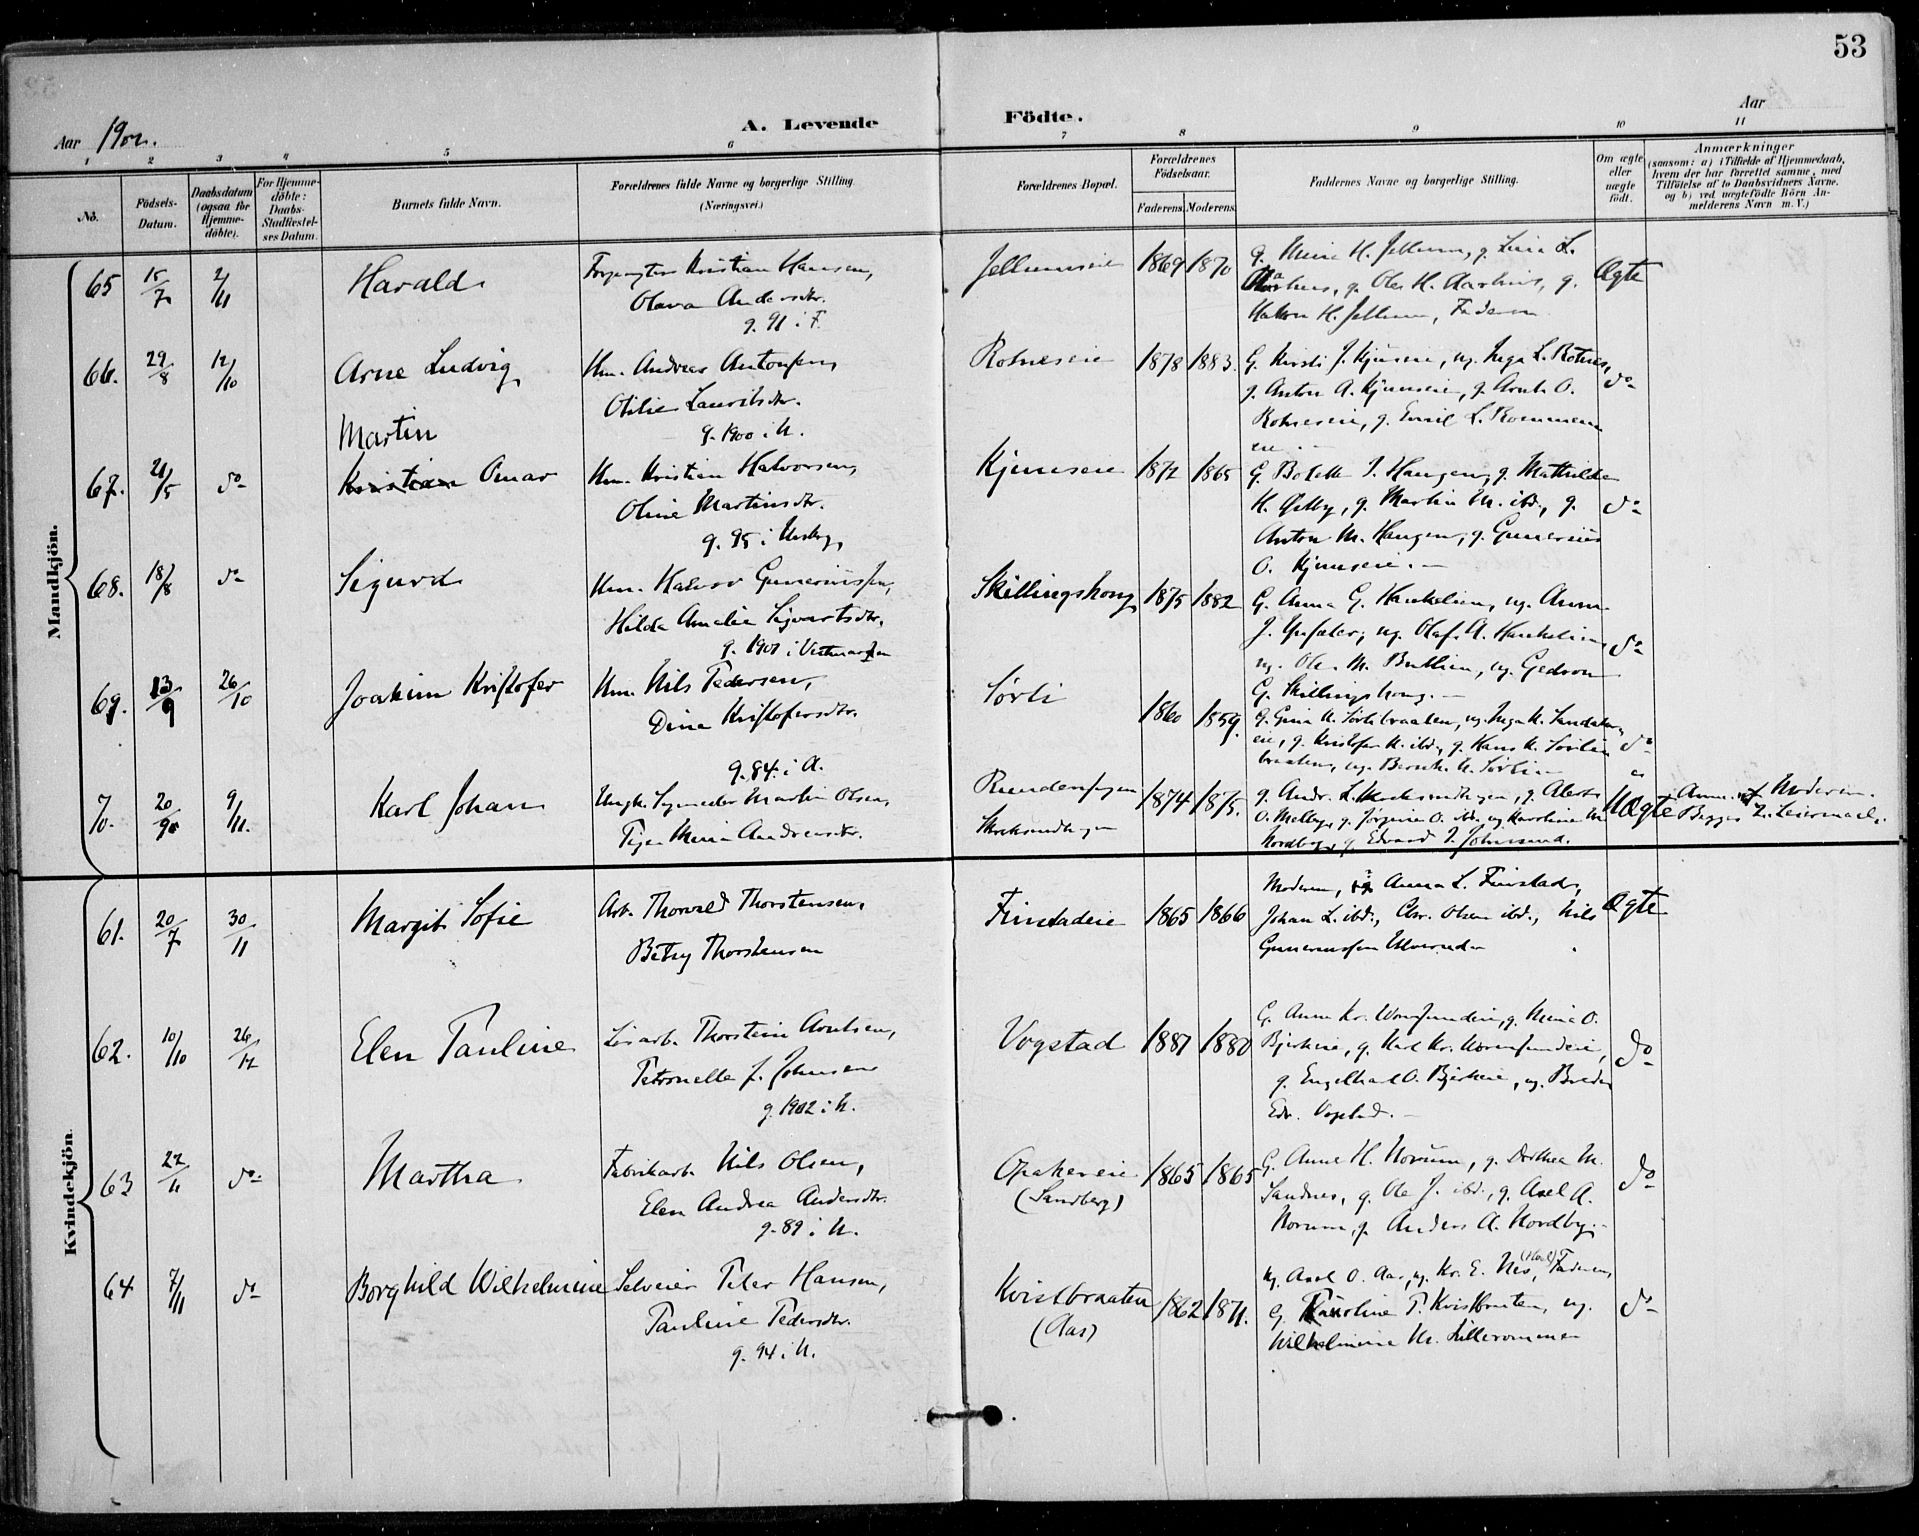 53
Aar 1902.
A. Levende Födte.
Aar
1 2 3 4 5 6 7 8 9 10 11
No.
Födsels-Datum.
Daabsdatum (ogsaa for Hjemme-döbte).
For Hjemme-döbte: Daabs-Stadfæstel-ses Datum.
Barnets fulde Navn.
Forældrenes fulde Navne og borgerlige Stilling.
(Næringsvei.)
Forældrenes Bopæl.
Forældrenes Födselsaar.
Faderens. Moderens.
Faddernes Navne og borgerlige Stilling.
Om ægte eller uægte födt.
Anmærkninger
(saasom: a) i Tilfælde af Hjemmedaab,
hvem der har forrettet samme, med
Tilföielse af to Daabsvidners Navne.
og b) ved uægtefödte Börn An-
melderens Navn m. V.)
Mandkjön.
65 15/7 2/11 Harald
Kristian Hansen,
Olava Andersdtr.
g. 91 i F.
Jellumseie 1869 1870
g. Mina H. Jellum, g. Lina L.
Aarhus, g. Ole H. Aarhus, g.
Hakon H. Jellum, Faderen
Ægte
66. 29/8 12/10 Arne Ludvig
Um. Andreas Antonsen,
Otilie Lauritsdtr.
g. 1900 i U.
Rotneseie 1878 1883.
G. Kirsti J. Kjunseie, ug. Inga L. Rotnes,
g. Anton A. Kjunseie, g. Arnt O.
Rotneseie, g. Emil L. Rommen
eie.
do
67. 21/5 do Martin
Kristian Omar
Um. Kristian Halvorsen,
Oline Martinsdtr.
g. 95 i Urskog
Kjunseie 1872 1865
G. Botolle J. Haugen, g. Mathilde
H. Østby, g. Martin M. ibd., g.
Anton M. Haugen, g. Gunerius
O. Kjunseie.
do
68. 18/8 do Sigurd
Um. Halvor Gunneriussen,
Hilda Amalie Sigvartsdtr.
g. 1901 i Vestmarken
Skillingshoug 1875 1882
G. Anna G. , ug. Anna
J. , ug. Olaf A.
ug. Ole M. , ug. Gedvon
G. Skillingshoug.
do
69. 13/9 26/10 Joakim Kristofer
Um. Nils Pedersen,
Dina Kristofersdtr.
g. 84 i A.
Sørli 1860 1859.
g. Gina K. Sørlibraaten, ug. Inga K.
eie, g. Kristofer K. ibd., g. Hans K. Sørli
braaten, ug. Bernh. N. Sørli
do
70. 20/9 9/11. Karl Johan
Ungk. Martin Olsen,
Pige Maria Andreasdtr.
1874 1875.
g. Andr. L. , g.
O. Melby, g. Jørgine O. ibd. ug Karoline M.
Nordby, g. Edvard J.
Uægte
Anm. af Moderen.
Begges 2. Leiermaal.
Kvindekjön.
61. 20/7 30/11 Margit Sofie
Arb. Thorvald Thorstensen,
Betsy Thorstensen
Finstadeie 1865 1866
Moderen, Anna L. Finstad,
Johan L. ibd., Chr. Olsen ibd., Nils
Gunneriussen
Ægte
62. 10/10 26/12 Elen Pauline
Løsarb. Thorstein Arntsen,
Petronelle J. Johnsen
g. 1902 i U.
Vogstad 1881 1880
G. Anna Kr. , g. Mina O.
Bjerkeie, g. Karl Kr.
g. Engelhart O. Bjerkeie, ug.
Edv. Vogstad.
do
63 22/11 do Martha
Fabrikarb. Nils Olsen,
Elen Andrea Andersdtr.
g. 89 i U.
Opakereie 1865 1865
(Sandberg)
G. Anne H. Norum, g. Dorthea M.
Sandnes, g. Ole J. ibd., g. Axel A.
Norum, g. Anders A. Nordby.
do
64 7/11 do Borghild Wilhelmine
Selveier Peter Hansen,
Pauline Pedersdtr.
g. 94 i U.
Kvistbraaten 1862 1871.
(Aas)
ug. Axel O. Aas, ug. Kr. E. Nes, Faderen,
G. Karoline P. Kvistbraaten, ug.
Wilhelmine M. Lillerommen
do